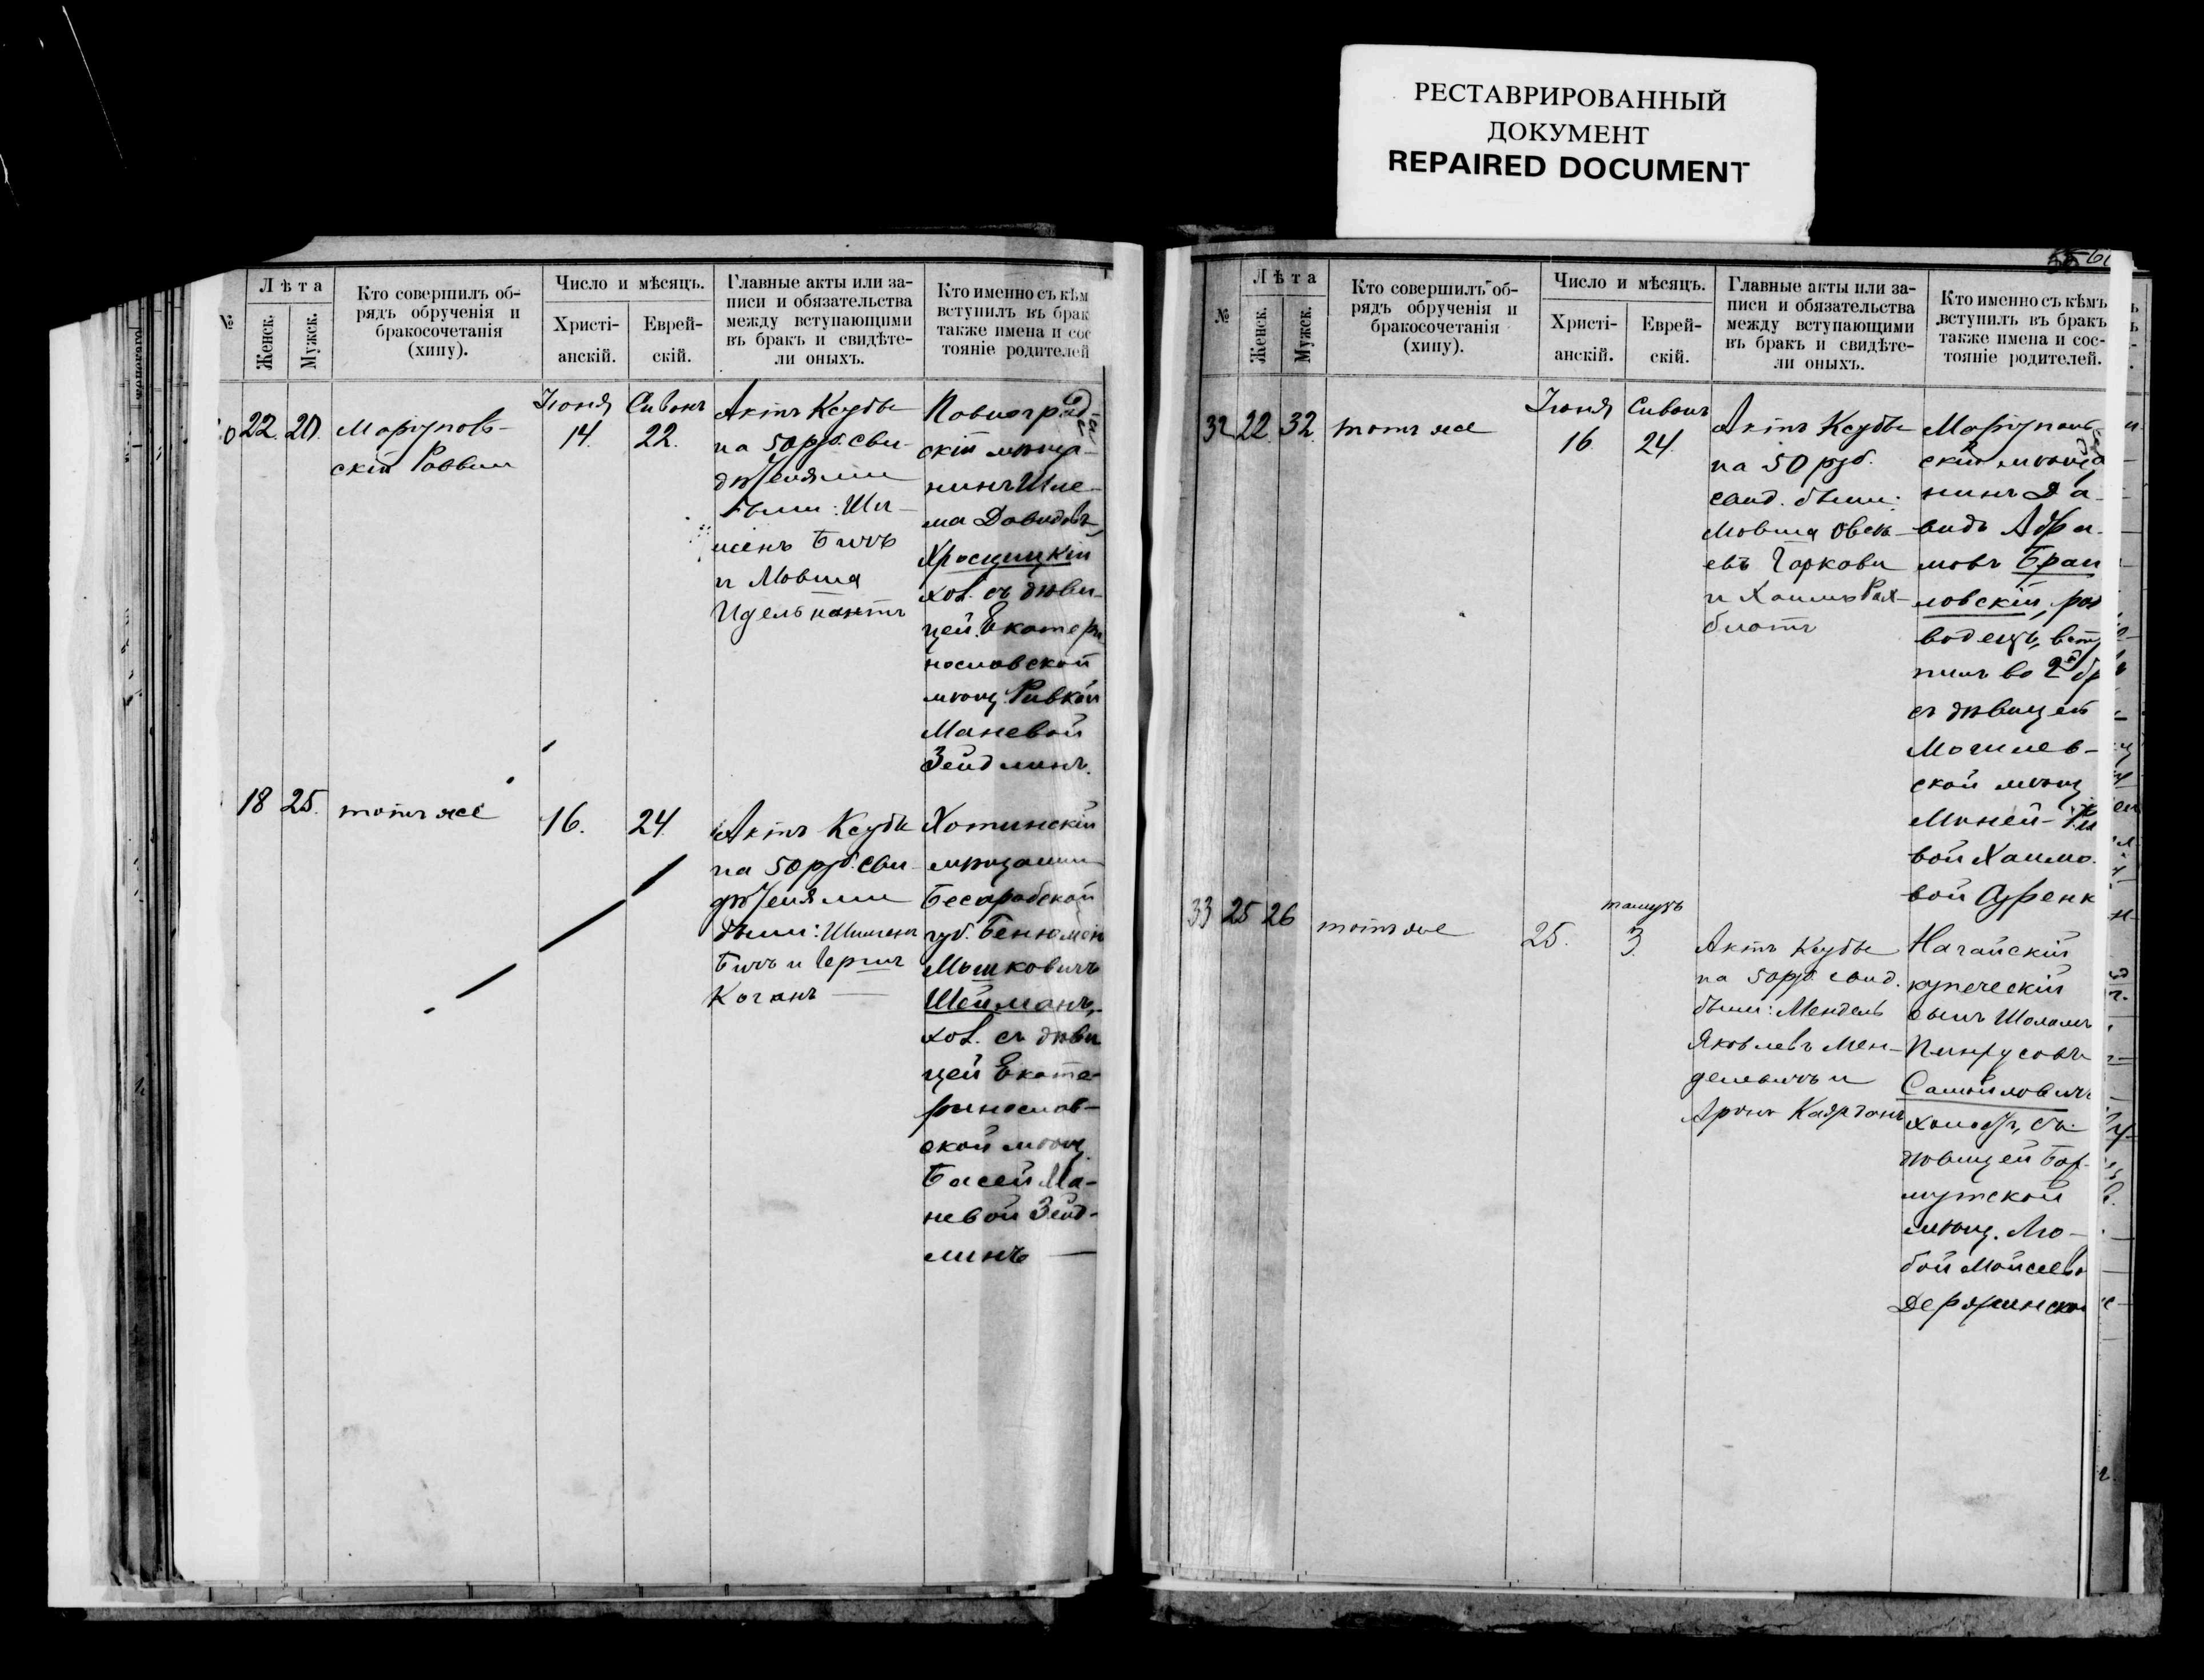 РЕСТАВРИРОВАННЫЙ
ДОКУМЕНТ
REPAIRED DOCUMENT
№
Лѣта
Женск.
Мужск.
Кто совершилъ об-
рядъ обрученія и
бракосочетанія
(хипу).
Число и мѣсяцъ.
Христі-
анскій.
Еврей-
скій.
Главные акты или за-
писи и обязательства
между вступающими
въ бракъ и свидѣте-
ли оныхъ.
Кто именно съ кѣм
вступилъ въ брак
также имена и сос
тояніе родителей
0
22.
20.
Маріупов-
скій Раввин
Іюня
14.
Сивонъ
22.
Актъ Ксубы
на 50 руб. Сви-
дѣтелями
были: Ши-
менъ Бичъ
и Мовша
Идель
Павлоград-
скій мѣща-
нинъ Шле-
ма Давидовъ
хол. съ дѣви-
цей Екатери
нославской
мѣщ. Ривкой
Маневой
Зейдлинъ.
18
25.
тотъ же
16.
24.
Актъ Ксубы
на 50 руб. Сви-
дѣтелями
были: Шимен
Бичъ и Герш
Коганъ —
Хотинскій
мѣщанин
Бесарабской
губ. Бенюмен
Мошковичъ
Шейманъ,
хол. съ дѣви
цей Екате-
ринослав-
ской мѣщ.
Басей Ма-
невой Зейд-
линъ —
№
Лѣта
Женск.
Мужск.
Кто совершилъ об-
рядъ обрученія и
бракосочетанія
(хипу).
Число и мѣсяцъ.
Христі-
анскій.
Еврей-
скій.
Главные акты или за-
писи и обязательства
между вступающими
въ бракъ и свидѣте-
ли оныхъ.
Кто именно съ кѣмъ
вступилъ въ бракъ
также имена и сос-
тояніе родителей.
32
22.
32.
тотъ же
Іюня
16.
Сивонъ
24.
Актъ Ксубы
на 50 руб.
свид. были:
Мовша Овсѣ-
евъ
и Хаимъ
Маріуполь
скій мѣща
нинъ Да-
видъ Абра-
мовъ Браи
ловскій, раз
водецъ, всту
пилъ во 2й бр
съ дѣвицей
Могилев-
ской мѣщ
Миней-
вой Хаимо-
вой
33
25
26
тотъ же
25.
тамузъ
3.
Актъ Ксубы
на 50 руб. свид.
были: Мендель
Яковлевъ Мен-
делевичъ и
Аронъ
Ногайскій
купеческій
сынъ Шоломъ
Пинхусовъ
Самойловичъ
холост, съ
дѣвицей Бах-
мутской
мѣщ. Лю-
бой Мойсеево